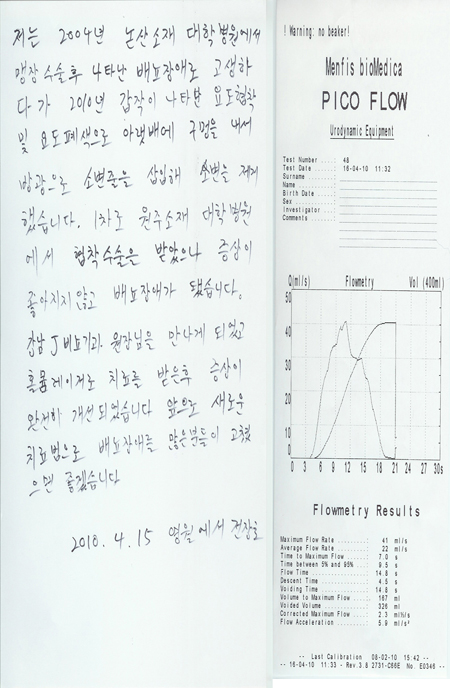 저는 2004년 논산소재 대학병원에서
맹장수술후 나타난 배뇨장애로 고생하
다가 2010년 갑작이 나타난 요도협착
및 요도폐색으로 아랫배에 구멍을 내서
방광으로 소변줄을 삽입해 소변을 제거
했습니다. 1차로 원주소재 대학병원
에서 협착수술을 받았으나 증상이
좋아지지 않고 배뇨장애가 됐습니다.
강남 J비뇨기과 원장님을 만나게 되었고
홀뮴레이저로 치료를 받은후 증상이
완전히 개선되었습니다 앞으로 새로운
치료법으로 배뇨장애를 많은분들이 고쳤
으면 좋겠습니다
2010. 4. 15 영월에서 전창호
! Warning: no beaker!
Menfis bioMedica
PICO FLOW
Urodynamic Equipment
Test Number ....: 48
Test Date ....: 16-04-10 11:32
Surname ....:
Name ....:
Birth Date ....:
Sex ....:
Investigator ....:
Comments ....:
Q(ml/s) Flowmetry Vol (400ml)
50
40
30
20
10
0
0 3 6 9 12 15 18 21 24 27 30s
Flowmetry Results
Maximum Flow Rate ....: 41 ml/s
Average Flow Rate ....: 22 ml/s
Time to Maximum Flow ....: 7.0 s
Time between 5% and 95% ....: 9.5 s
Flow Time ....: 14.8 s
Descent Time ....: 4.5 s
Voiding Time ....: 14.8 s
Volume to Maximum Flow ....: 167 ml
Voided Volume ....: 326 ml
Corrected Maximum Flow ....: 2.3 ml½/s
Flow Acceleration ....: 5.9 ml/s²
-- Last Calibration 08-02-10 15:42 --
-- 16-04-10 11:33 - Rev.3.8 2731-C66E No. E0346 --